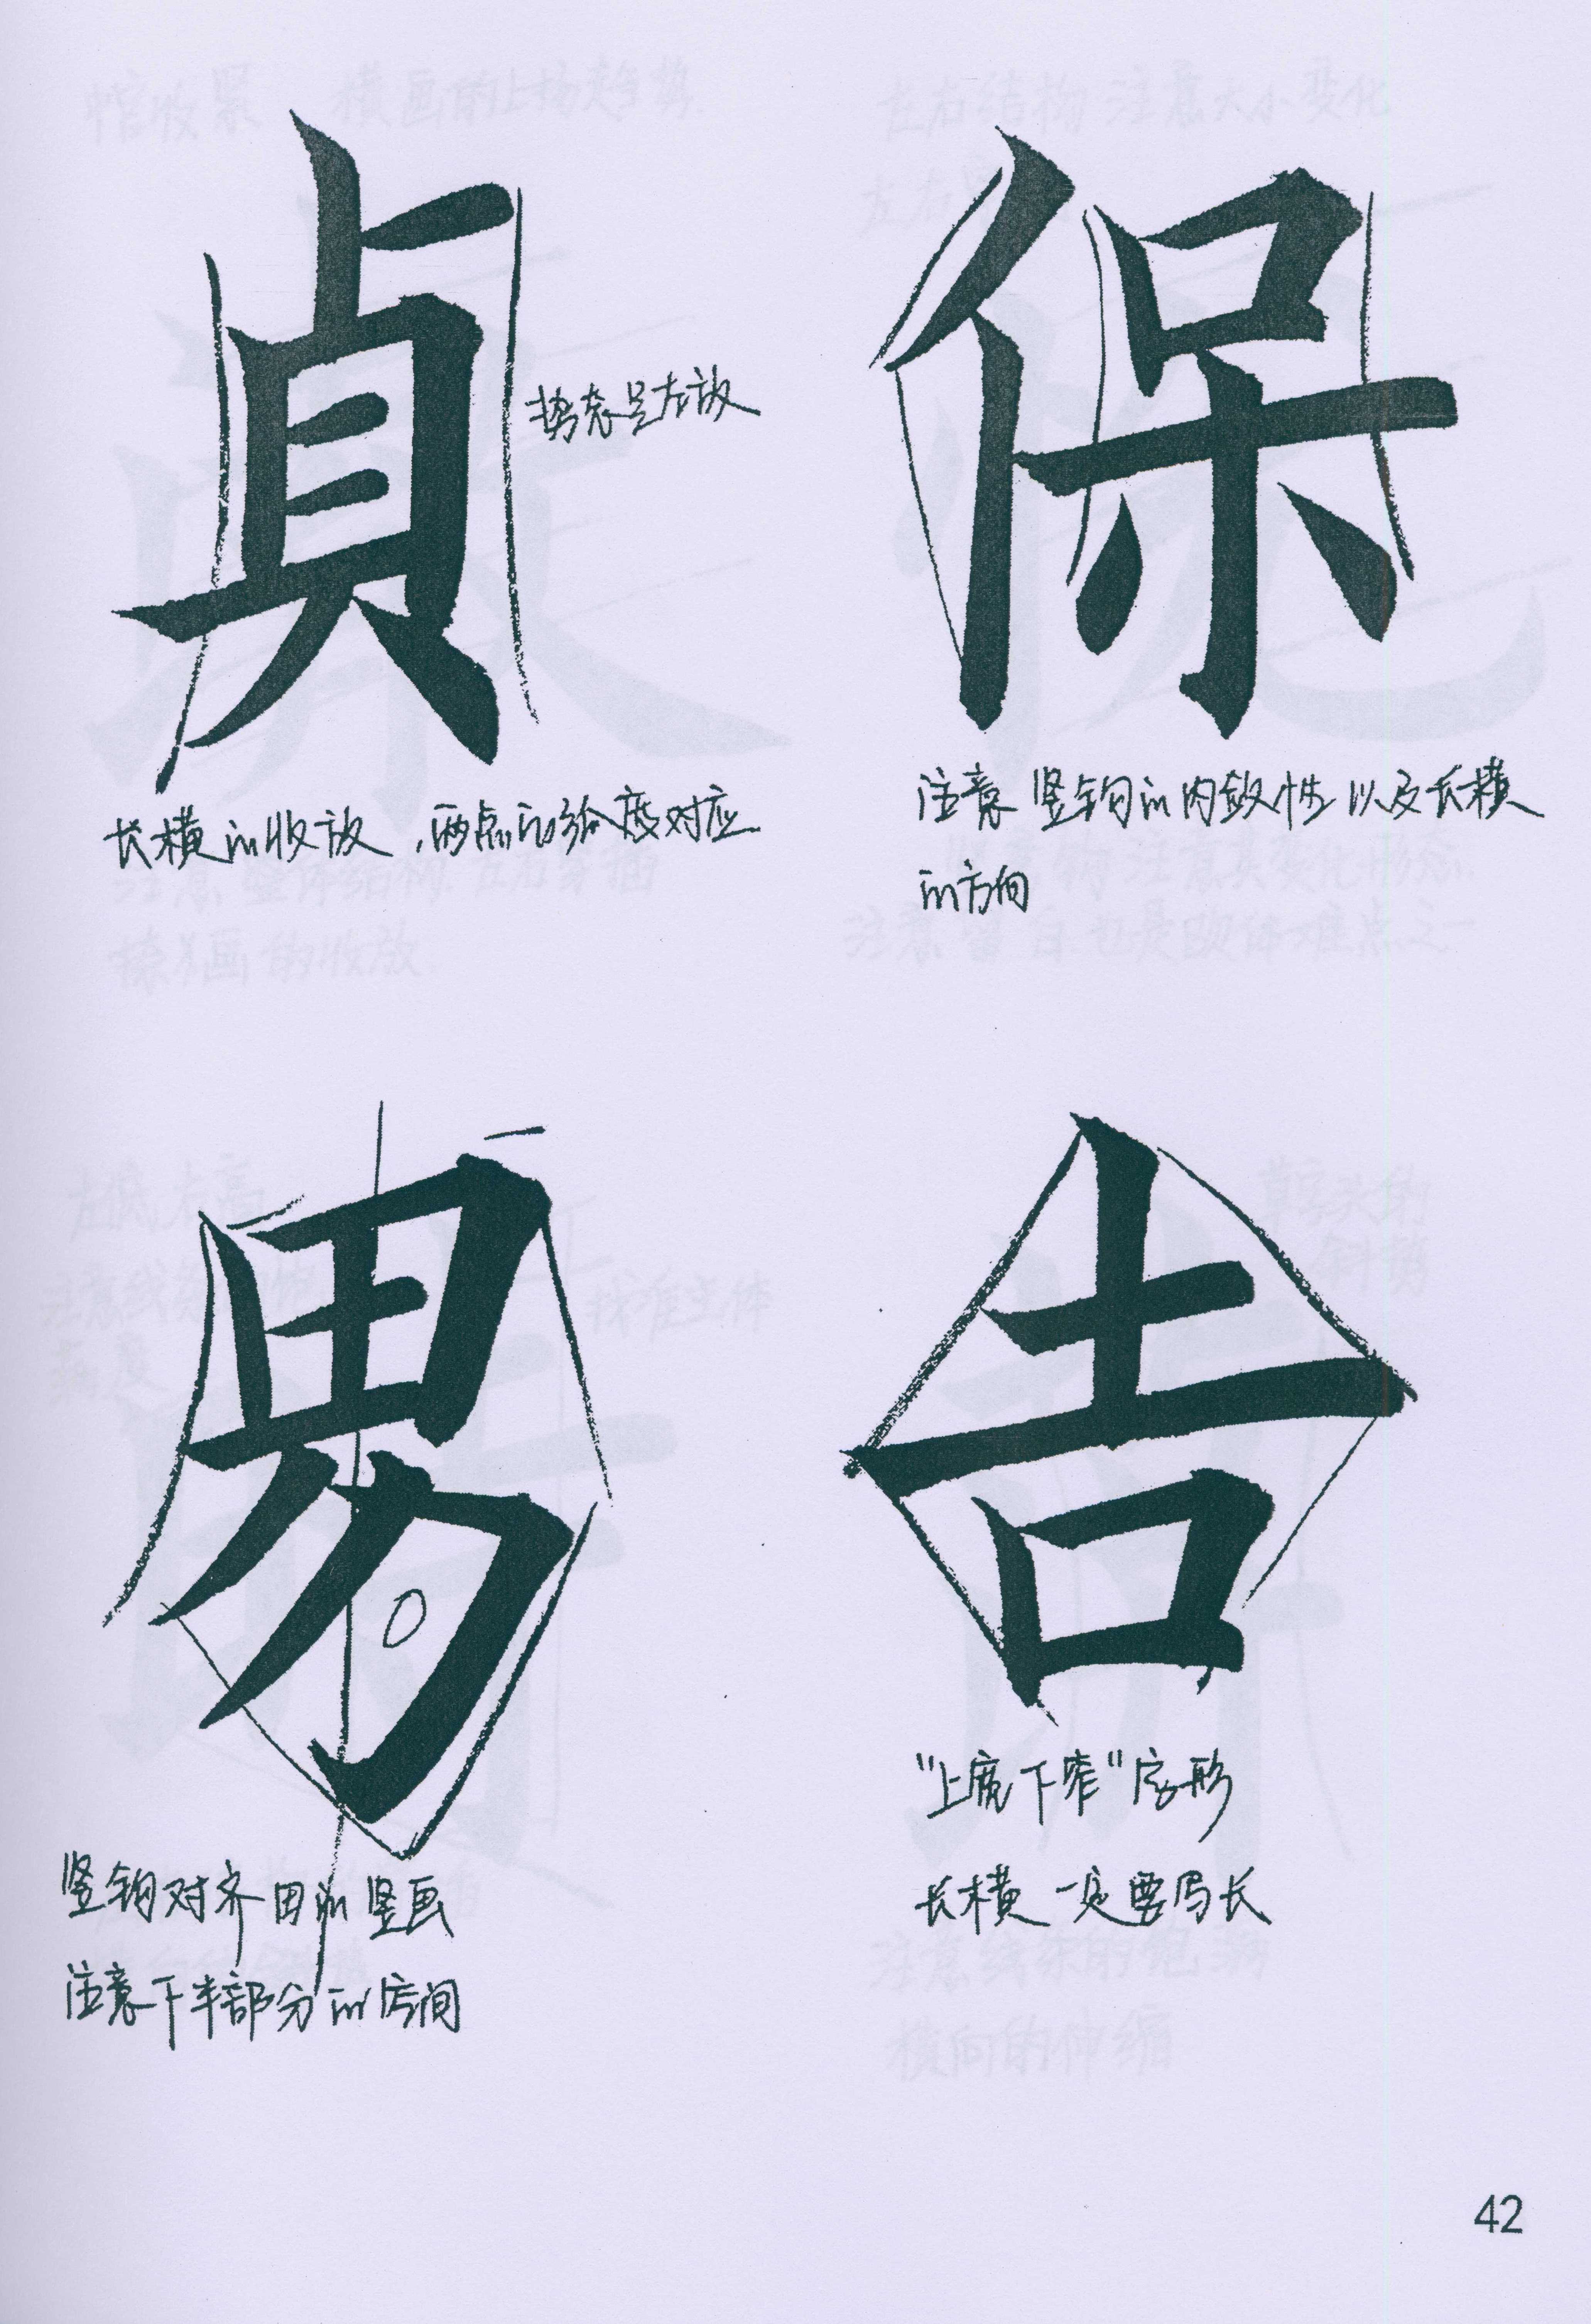 貞
势态是左放
长横的收放,两点的给度对应
保
注意竖钩的内敛性以及长横
的方向
男
竖钩对齐田的竖画
注意下半部分的空间
告
"上宽下窄"字形
长横一定要写长
42